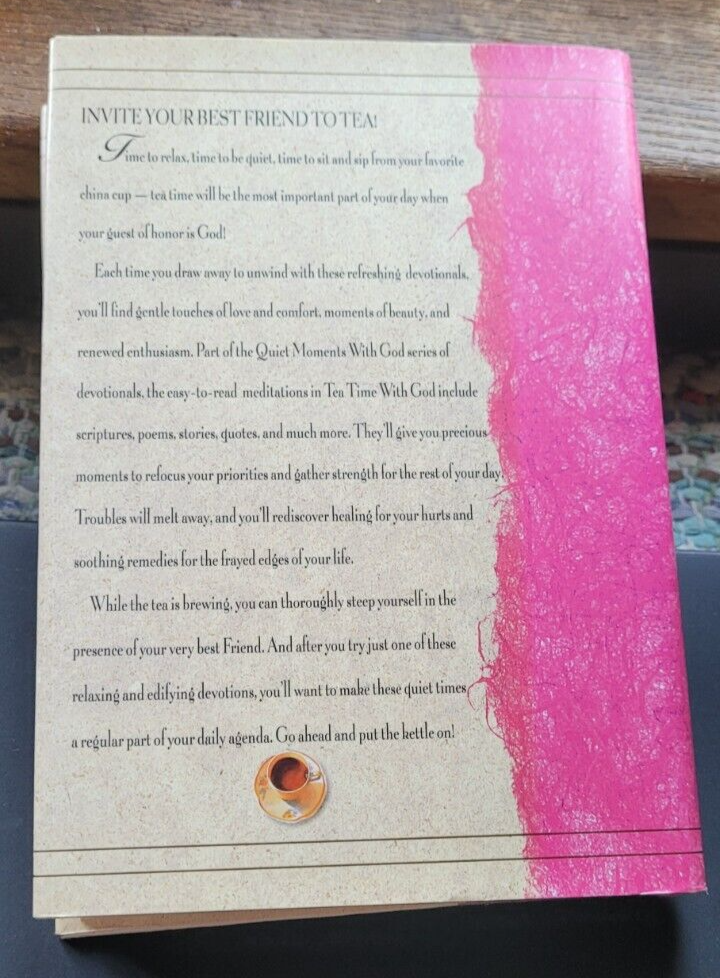 INVITE YOUR BEST FRIEND TO TEA!
Time to relax, time to be quiet, time to sit and sip from your favorite
china cup — tea time will be the most important part of your day when
your guest of honor is God!
Each time you draw away to unwind with these refreshing devotionals,
you'll find gentle touches of love and comfort, moments of beauty, and
renewed enthusiasm. Part of the Quiet Moments With God series of
devotionals, the easy-to-read meditations in Tea Time With God include
scriptures, poems, stories, quotes, and much more. They'll give you precious
moments to refocus your priorities and gather strength for the rest of your day.
Troubles will melt away, and you'll rediscover healing for your hurts and
soothing remedies for the frayed edges of your life.
While the tea is brewing, you can thoroughly steep yourself in the
presence of your very best Friend. And after you try just one of these
relaxing and edifying devotions, you'll want to make these quiet times
a regular part of your daily agenda. Go ahead and put the kettle on!